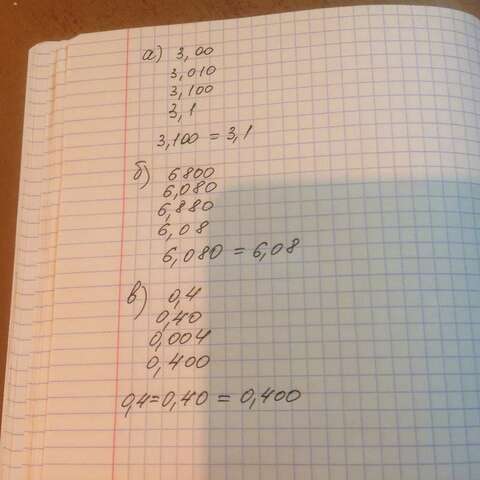 а) 3,00
3,010
3,100
3,1
3,100 = 3,1
б) 6800
6,080
6,880
6,08
6,080 = 6,08
в) 0,4
0,40
0,004
0,400
0,4=0,40 = 0,400